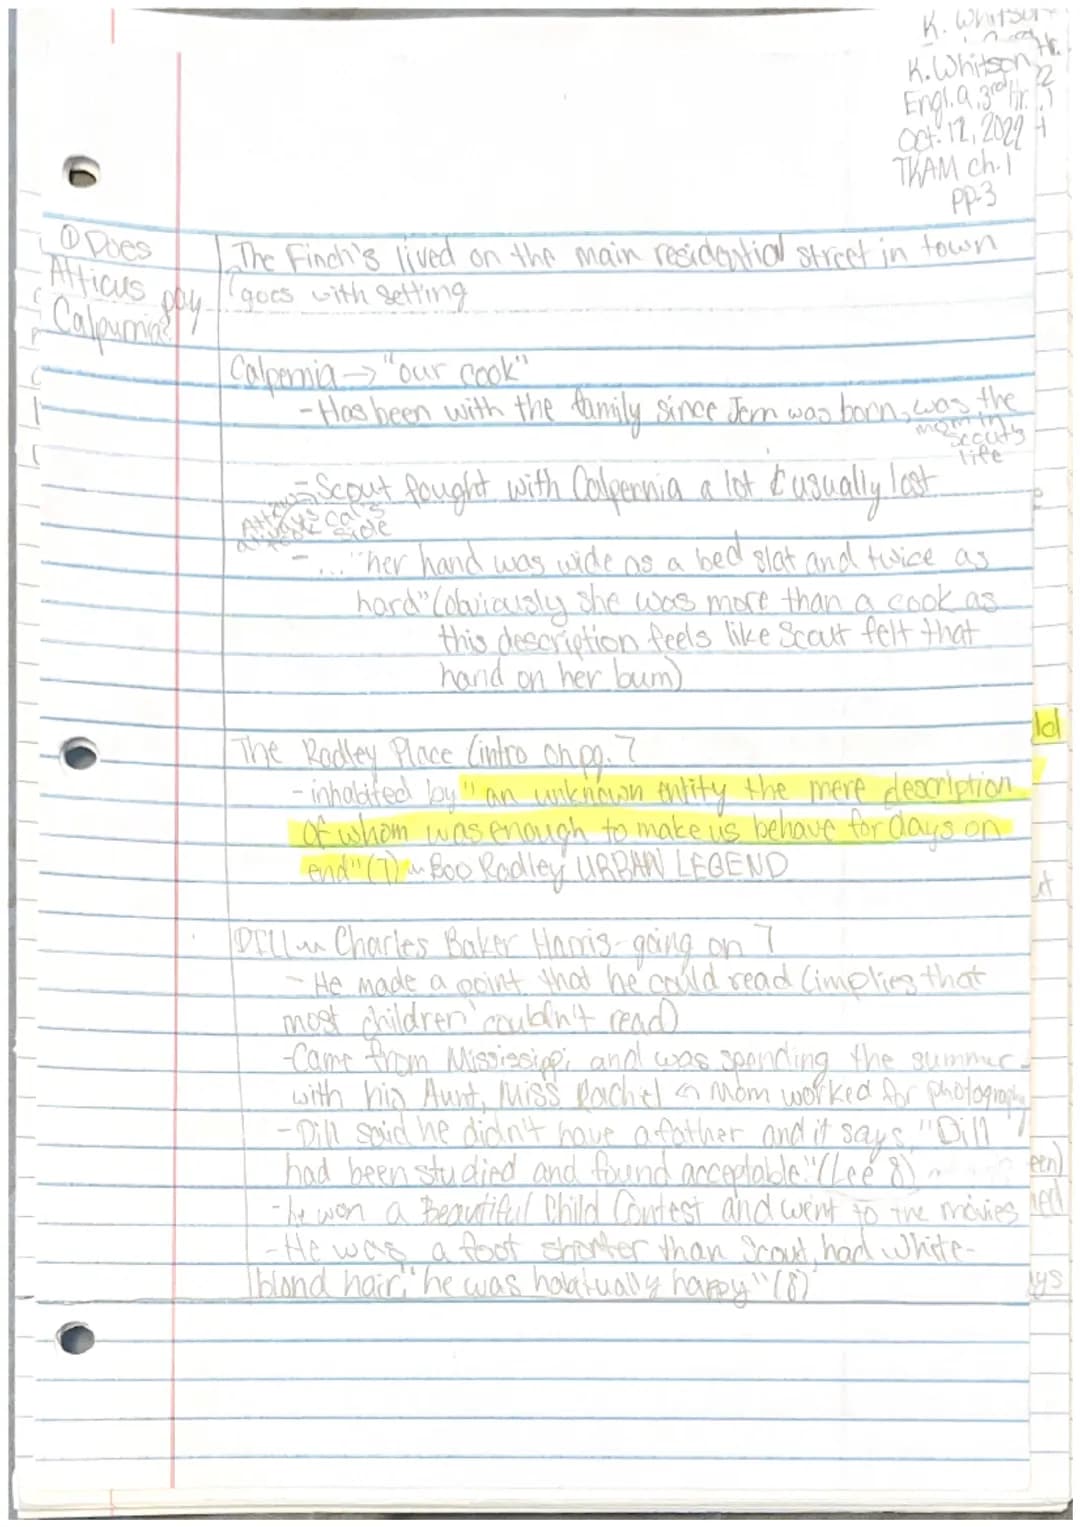 K. Whitson
K. Whitson
Engl. 9, 3rd Hr.
Oct. 12, 2022
TKAM ch. 1
pp. 3
① Does
Atticus pay
Calpurnia?
The Finch's lived on the main residential street in town
goes with setting
Calpernia → "our cook"
- Has been with the family since Jem was born, was the
mom in
Scout's
life
- Scout fought with Calpernia a lot & usually lost
Atticus
always
took Cal's
side
- ... "her hand was wide as a bed slat and twice as
hard" (obviously she was more than a cook as
this description feels like Scout felt that
hand on her bum)
The Radley Place (intro on pg. 7
- inhabited by "an unknown entity the mere description
of whom was enough to make us behave for days on
end" (7) ~ Boo Radley URBAN LEGEND
DILL ~ Charles Baker Harris - going on 7
- He made a point that he could read (implies that
most children couldn't read)
- Came from Mississippi and was spending the summer
with his Aunt, Miss Rachel ↪ Mom worked for photography
- Dill said he didn't have a father and it says, "Dill
had been studied and found acceptable." (Lee 8)
- he won a Beautiful Child Contest and went to the movies
- He was a foot shorter than Scout, had white-
blond hair, "he was habitually happy" (8)